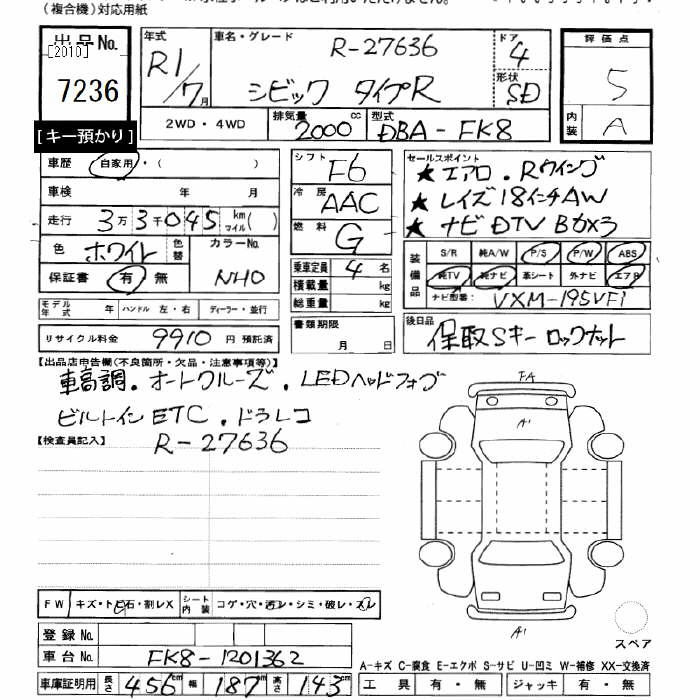 (複合機)対応用紙
出品No.
[2010]
7236
[キー預かり]
年式
R1/7月
車名・グレード
R-27636
シビック タイプR
ドア
4
形状
SD
評価点
5
内装
A
2WD ・ 4WD
排気量
2000 cc
型式
DBA-FK8
車歴 自家用・( )
車検 年 月
走行 3万3千045 km マイル( )
色 ホワイト 色替 カラーNo.
保証書 有・無 NH0
シフト F6
冷房 AAC
燃料 G
乗車定員 4 名
積載量 kg
総重量 kg
セールスポイント
★エアロ.Rウイング
★レイズ18インチAW
★ナビDTV Bカメラ
装備品
S/R 純A/W P/S P/W ABS
純TV 純ナビ 革シート 外ナビ エアB
ナビ型番: VXM-195VFi
モデル年式 年 ハンドル 左・右 ディーラー・並行
リサイクル料金 9910 円 預託済
書類期限 月 日
後日品
保取Sキー ロックナット
【出品店申告欄(不良箇所・欠品・注意事項等)】
車高調.オートクルーズ.LEDヘッドフォグ
ビルトインETC.ドラレコ
【検査員記入】
R-27636
FA
A1
A1
スペア
FW キズ・トビ石・割レX シート内装 コゲ・穴・汚レ・シミ・破レ・スレ
登録No.
車台No. FK8-1201362
車庫証明用 長さ 456cm 幅 187cm 高さ 143cm
A-キズ C-腐食 E-エクボ S-サビ U-凹ミ W-補修 XX-交換済
工具 有・無 ジャッキ 有・無